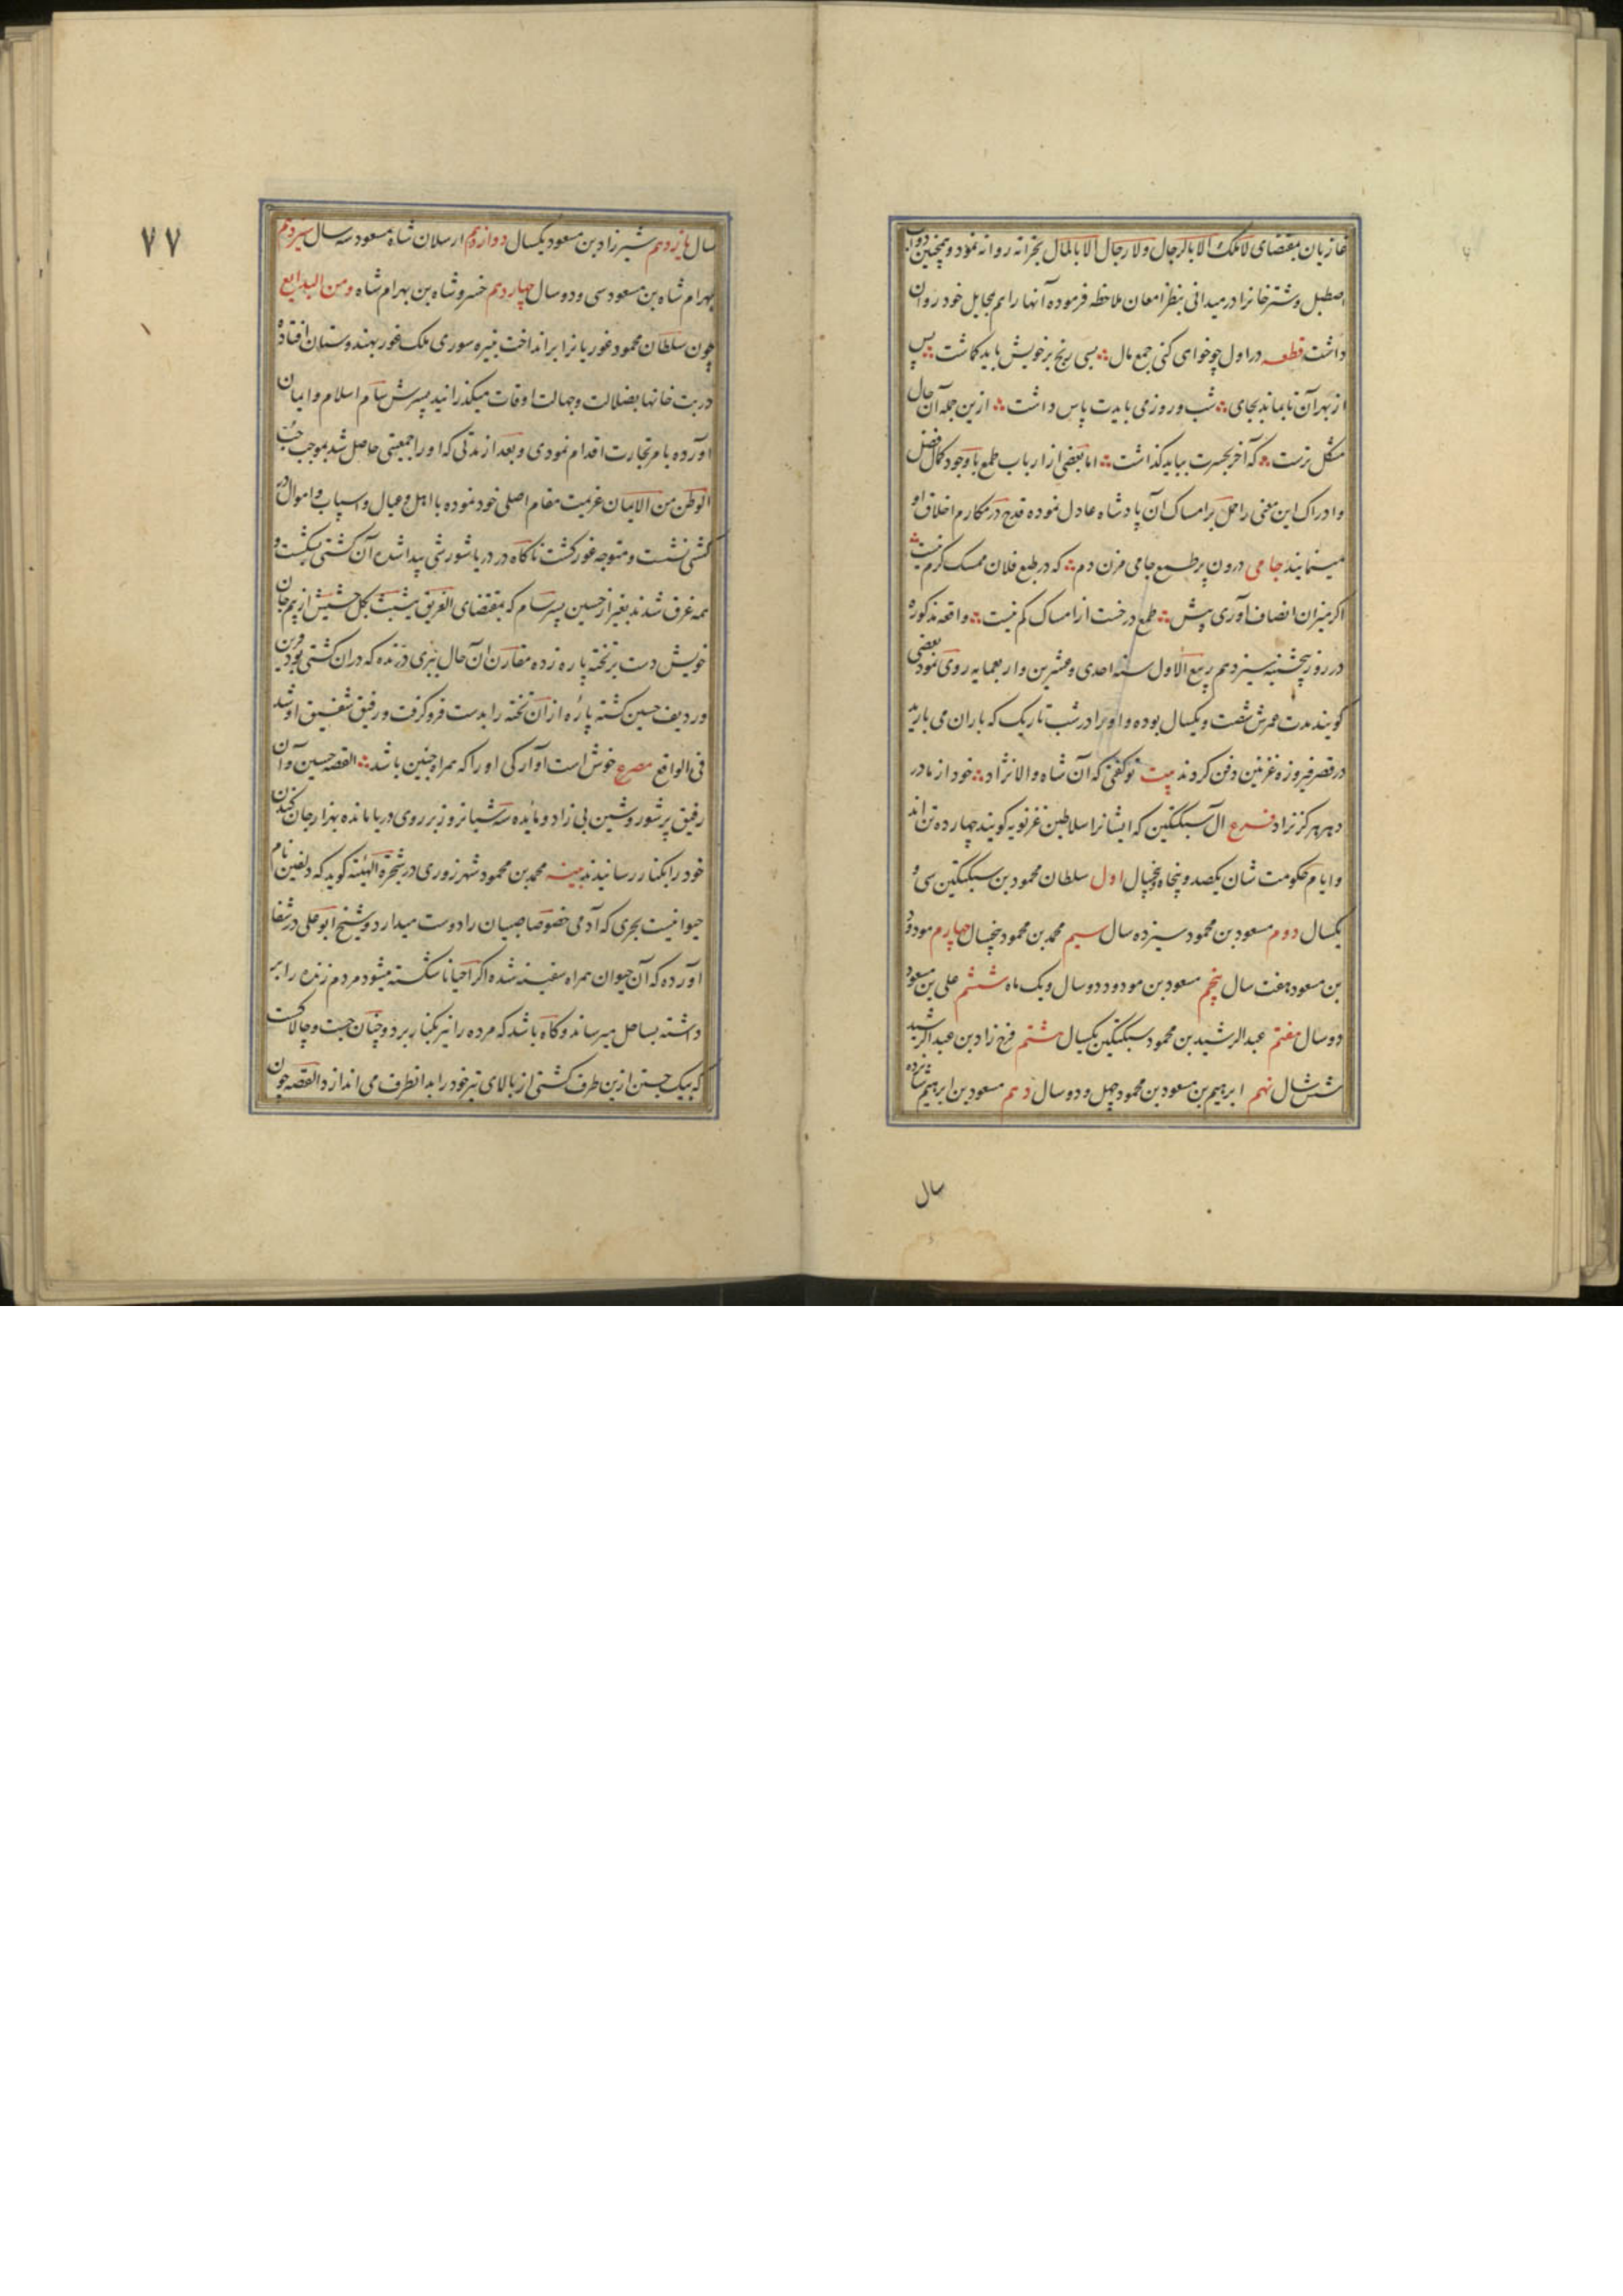 غازیان بمقتضای لا ملک الا بالرجال ولا رجال الا بالمال بخزانه روانه نمود و همچنین دواب
اصطبل و شترخانرا در میدانی بنظر امعان ملاحظه فرموده آنها را هم بجایل خود روان
داشت قطعه در اول چو خوای کنی جمع مال بسی رنج بر خویش باید کماشت پس
از بهر آن تا بماند بجای شب و روز می بایدت پاس داشت ازین جمله آن حال
مشکل ترست که آخر بحسرت بباید کذاشت اما بعضی از ارباب طمع با وجود کمال فضل
و ادراک این معنی را حمل بر امساک آن پادشاه عادل نموده قدح در مکارم اخلاق او
مینمایند جامی درون پر طمع جامی مزن دم که در طبع فلان ممسک کرم نیست
اکر میزان انصاف آوری پیش طمع در خست از امساک کم نیست واقعه مذکوره
در روز پنجشنبه سیزدهم ربیع الاول سنه احدی و عشرین و اربعمایه روی نمود بعضی
کویند مدت عمرش شصت و یکسال بوده و او را در شب تاریک که باران می بارید
در قصر فیروزه غزنین دفن کردند بیت تو کفتی که آن شاه والا نژاد خود از مادر
دهر هرکز نزاد فرع آل سبکتکین که ایشانرا سلاطین غزنویه کویند چهارده تن اند
و ایام حکومت شان یکصد و پنجاه و پنجسال اول سلطان محمود بن سبکتکین سی و
یکسال دوم مسعود بن محمود سیزده سال سیم محمد بن محمود پنجسال چهارم مودود
بن مسعود هفت سال پنجم مسعود بن مودود دو سال و یک ماه ششم علی بن مسعود
دو سال هفتم عبد الرشید بن محمود سبکتکین یکسال هشتم فرخ زاد بن عبد الرشید
شش سال نهم ابرهیم بن مسعود بن محمود چهل و دو سال دهم مسعود بن ابرهیم شانزده
سال
۷۷
سال یازدهم شیرزاد بن مسعود یکسال دوازدهم ارسلان شاه مسعود سه سال سیزدهم
بهرام شاه بن مسعود سی و دو سال چهاردهم خسرو شاه بن بهرام شاه ومن البدایع
چون سلطان محمود غوریانرا برانداخت نبیره سوری ملک غور بهندوستان افتاده
در بت خانها بضلالت و جهالت اوقات میکذرانید پسرش سام اسلام و ایمان
آورده بامر تجارت اقدام نمودی و بعد از مدتی که او را جمعیتی حاصل شد بموجب حب
الوطن من الایمان عزیمت مقام اصلی خود نموده با اهل و عیال و اسباب و اموال در
کشتی نشست و متوجه غور کشت ناکاه در دریا شورشی پیدا شد آن کشتی بشکست و
همه غرق شدند بغیر از حسین پسر سام که بمقتضای الغریق یتشبث بکل حشیش از بیم جان
خویش دست بر تخته پاره زده مقارن آن حال ببری درنده که در ان کشتی بود قرین
و ردیف حسین کشته پاره از ان تخته را بدست فرو کرفت و رفیق شفیق او شد
فی الواقع مصرع خوش است آوارکی او را که همراه چنین باشد القصه حسین و آن
رفیق پر شور و شین بی زاد و مائده سه شبانروز بر روی دریا مانده بهزار جان کندن
خود را بکنار رسانیدند بینه محمد بن محمود شهرزوری در شجره الهیه کوید که دلفین نام
حیوانیست بحری که آدمی خصوصا صبیان را دوست میدارد و شیخ ابو علی در شفا
آورده که آن حیوان همراه سفینه شده اکر احیانا شکسته میشود مردم زنده را بر
داشته بساحل میرساند و کاه باشد که مرده را نیز بکنار برد و چنان جست و چالاکست
که بیک جستن ازین طرف کشتی از بالای تیر خود را بدانطرف می اندازد القصه چون